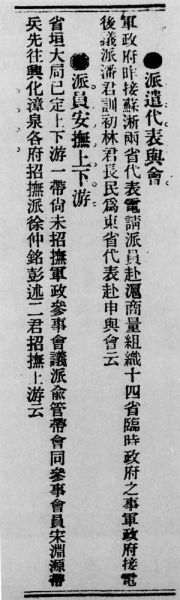 ●派遣代表與會
軍政府昨接蘇浙兩省代表電請派員赴滬商量組織十四省臨時政府之事軍政府接電
後議派潘君訓初林君長民爲東省代表赴申與會云
●派員安撫上下游
省垣大局已定上下游一帶尙未招撫軍政參事會議派兪管帶會同參事會員宋淵源帶
兵先往興化漳泉各府招撫派徐仲銘彭述二君招撫上游云